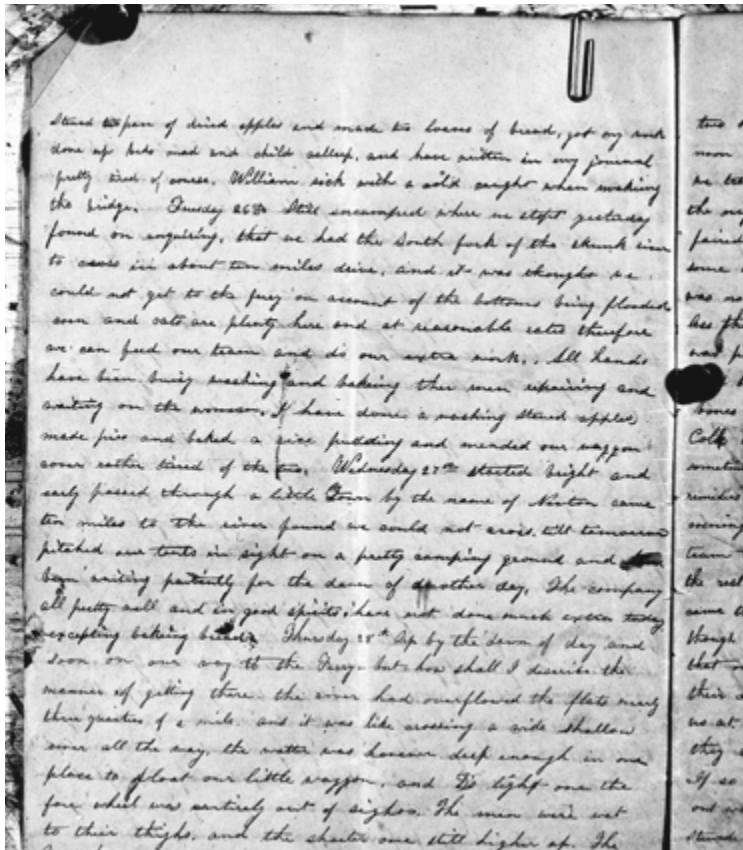 Stewed pan of dried apples and made two loaves of bread, got my work
done up beds mad and child asleep, and have written in my journal
pretty tired of course. William sick with a cold caught when making
the bridge. Tuesday 26th Still encamped where we stopt yestaday
found on enquiring, that we had the South fork of the skunk river
to cross in about ten miles drive, and it was thought we
could not get to the ferry on account of the bottoms being flooded
corn and oats are plenty here and at reasonable rates therefore
we can feed our team and do our extra work. All hands
have been busy washing and baking the men repairing and
waiting on the women. I have done a washing stewed apples
made pies and baked a rice pudding and mended our waggon
cover rather tired of the two. Wednesday 27th started bright and
early passed through a little Town by the name of Newton came
ten miles to the river found we could not cross till tomorrow
pitched our tents in sight on a pretty camping ground and
been waiting patiently for the dawn of another day. The company
all pretty well and in good spirits. have not done much extra today
excepting baking bread. Thursday 28th Up by the dawn of day and
soon on our way to the Ferry but how shall I describe the
manner of getting there the river had overflowed the flats nearly
three quarters of a mile. and it was like crossing a wide shallow
river all the way, the watter was however deep enough in one
place to float our little waggon, and Ds light one the
fore wheel was entirely out of sight. The men were wet
to their thighs, and the shorter one still higher up. The
two
noon
we
the
paired
some
was
less
was
bones
Colt
evening
team
the rest
came
though
that
their
us at
they
If so
out